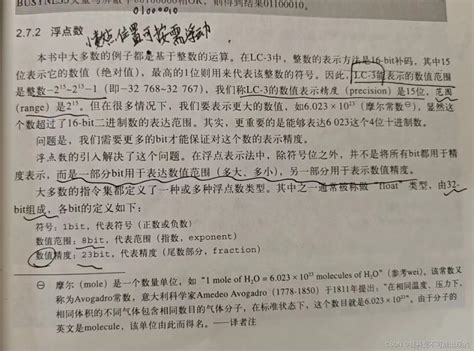 01000010
2.7.2 浮点数 位置可按需浮动
本书中大多数的例子都是基于整数的运算。在LC-3中，整数的表示方法是16-bit补码，其中15
位表示它的数值（绝对值），最高的1位则用来代表该整数的符号。因此，LC-3能表示的数值范围
是整数-2¹⁵~2¹⁵-1（即-32 768~32 767），我们称LC-3的数值表示精度（precision）是15位，范围
(range) 是2¹⁵。但在很多情况下，我们要表示更大的数值，如6.023×10²³（摩尔常数⊖）。显然这
个数超过了16-bit二进制数的表达范围。其实，更重要的是能够表达6 023这个4位十进制数。
问题是，我们需要更多的bit才能保证对这个数的表示精度。
浮点数的引入解决了这个问题。在浮点表示法中，除符号位之外，并不是将所有bit都用于精
度表示，而是一部分bit用于表达数值范围（多大、多小），另一部分用于表示数值精度。
大多数的指令集都定义了一种或多种浮点数类型。其中之一通常被称做“float”类型，由32-
bit组成，各bit的定义如下：
符号：1bit，代表符号（正数或负数）
数值范围：8bit，代表范围（指数，exponent）
数值精度：23bit，代表精度（尾数部分，fraction）
⊖ 摩尔（mole）是一个数量单位，如“1 mole of H₂O = 6.023×10²³ molecules of H₂O”（参考wei），该常数又
称为Avogadro常数，意大利科学家Amedeo Avogadro（1778-1850）于1811年提出：“在相同温度、压力下，
相同体积的不同气体包含相同数目的气体分子，在标准状态下，这个数目就是6.023×10²³”。由于分子的
英文是molecule，该单位由此而得名。——译者注